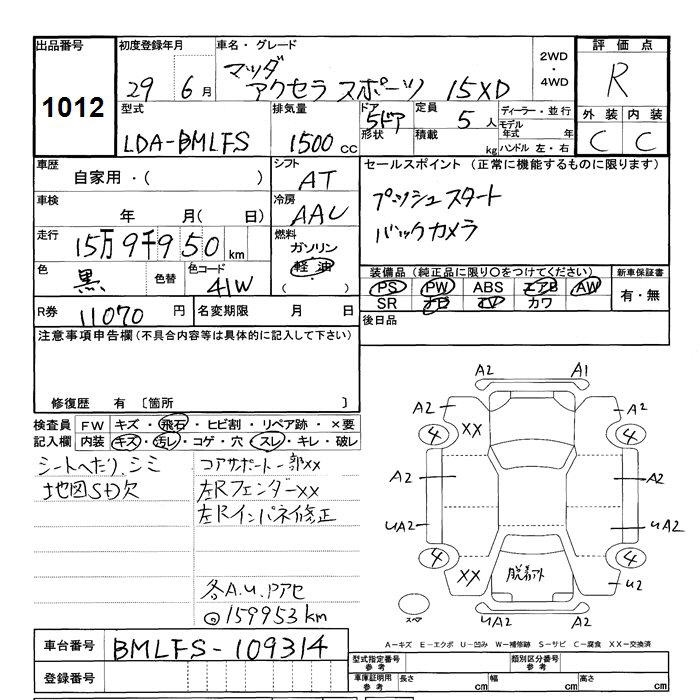 出品番号 初度登録年月 車名・グレード 2WD ・ 4WD 評価点
1012 29 6月 マツダ アクセラスポーツ 15XD R
型式 排気量 ドア 形状 定員 積載 ディーラー・並行 モデル年式 年 ハンドル 左・右 外装 内装
LDA-BMLFS 1500cc 5ドア 5人 kg C C
車歴 シフト セールスポイント(正常に機能するものに限ります)
自家用・( ) AT
プッシュスタート
車検 冷房
年 月( 日) AAC
バックカメラ
走行 燃料
15万9千950km ガソリン
軽油
( )
色 色替 色コード
黒 41W
装備品(純正品に限り○をつけてください) 新車保証書
PS PW ABS エアB AW 有・無
SR ナビ TV カワ
R券 11070円 名変期限 月 日
後日品
注意事項申告欄(不具合内容等は具体的に記入して下さい)
修復歴 有 〔箇所 〕
検査員 FW キズ・飛石・ヒビ割・リペア跡・×要
記入欄 内装 キズ・汚レ・コゲ・穴・スレ・キレ・破レ
シートへたり、シミ
地図SD欠
コアサポート一部XX
左Rフェンダー XX
左Rインパネ修正
各A.U.Pアセ
◎159953km
A2 A1
A2 A2
4 XX 4
A2 A2
UA2 UA2
4 XX 4
U2
UA2 A2
スペア
A-キズ E-エクボ U-凹み W-補修跡 S-サビ C-腐食 XX-交換済
車台番号 BMLFS-109314
登録番号
型式指定番号 参考 類別区分番号 参考
車庫証明用 参考 長さ cm 幅 cm 高さ cm